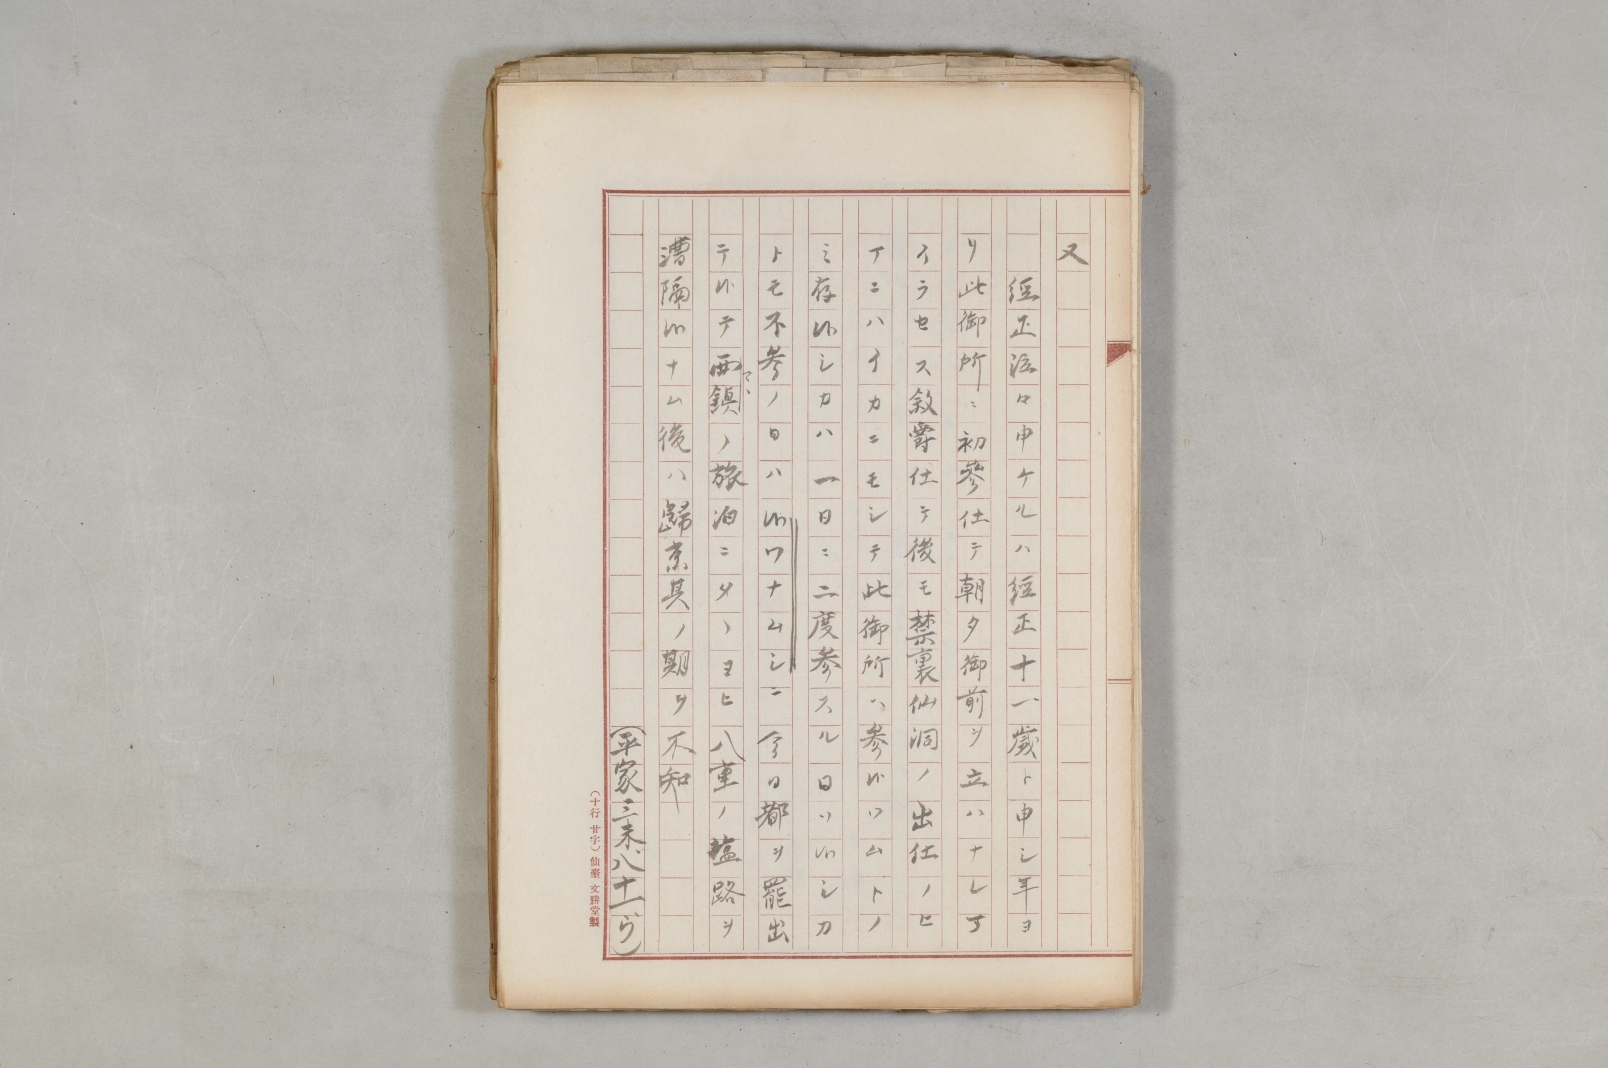 又
經正泣々申ケルハ經正十一歲ト申シ年ヨ
リ此御所ニ初參仕テ朝夕御前ヲ立ハナレマ
イラセス敘爵仕テ後モ禁裏仙洞ノ出仕ノヒ
マニハイカニモシテ此御所ヘ參ハヤムトノ
ミ存候シカハ一日ニ二度參スル日ハ候シカ
トモ不參ノ日ハ候ワナムシニ今日都ヲ罷出
テ候テ西鎭ノ旅泊ニタヽヨヒ八重ノ塩路ヲ
漕隔候ナム後ハ歸京其ノ期ヲ不知
(平家三末、八十一ウ)
(十行 廿字) 仙臺 文勝堂製